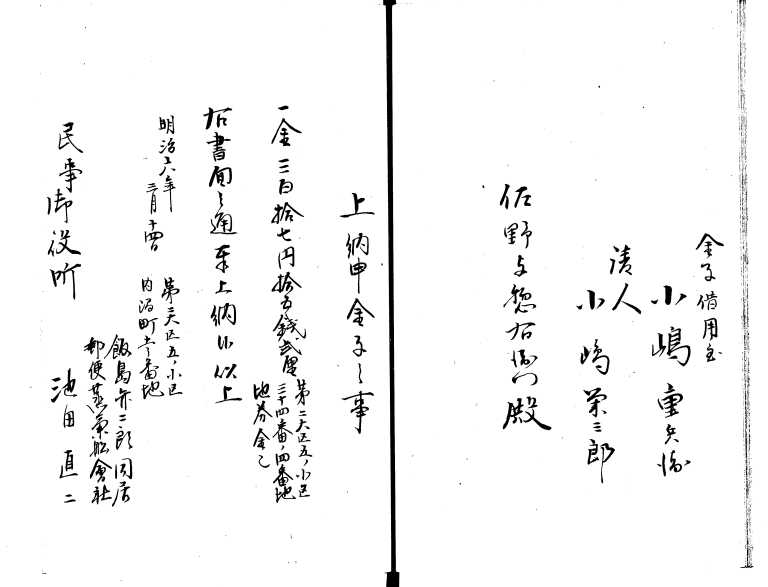 金子借用主
小嶋重兵衛
請人
小嶋菓三郎
佐野与惣右衛門殿
上納申金子之事
一金三百拾七円拾五銭弐厘
第二大区五ノ小区
三十四番ノ四番地
地券金也
右書面之通奉上納候以上
明治六年
三月十四日
第二大区五ノ小区
内酒町
番地
飯島弥二郎同居
郵便蒸気船會社
池田直二
民事御役所